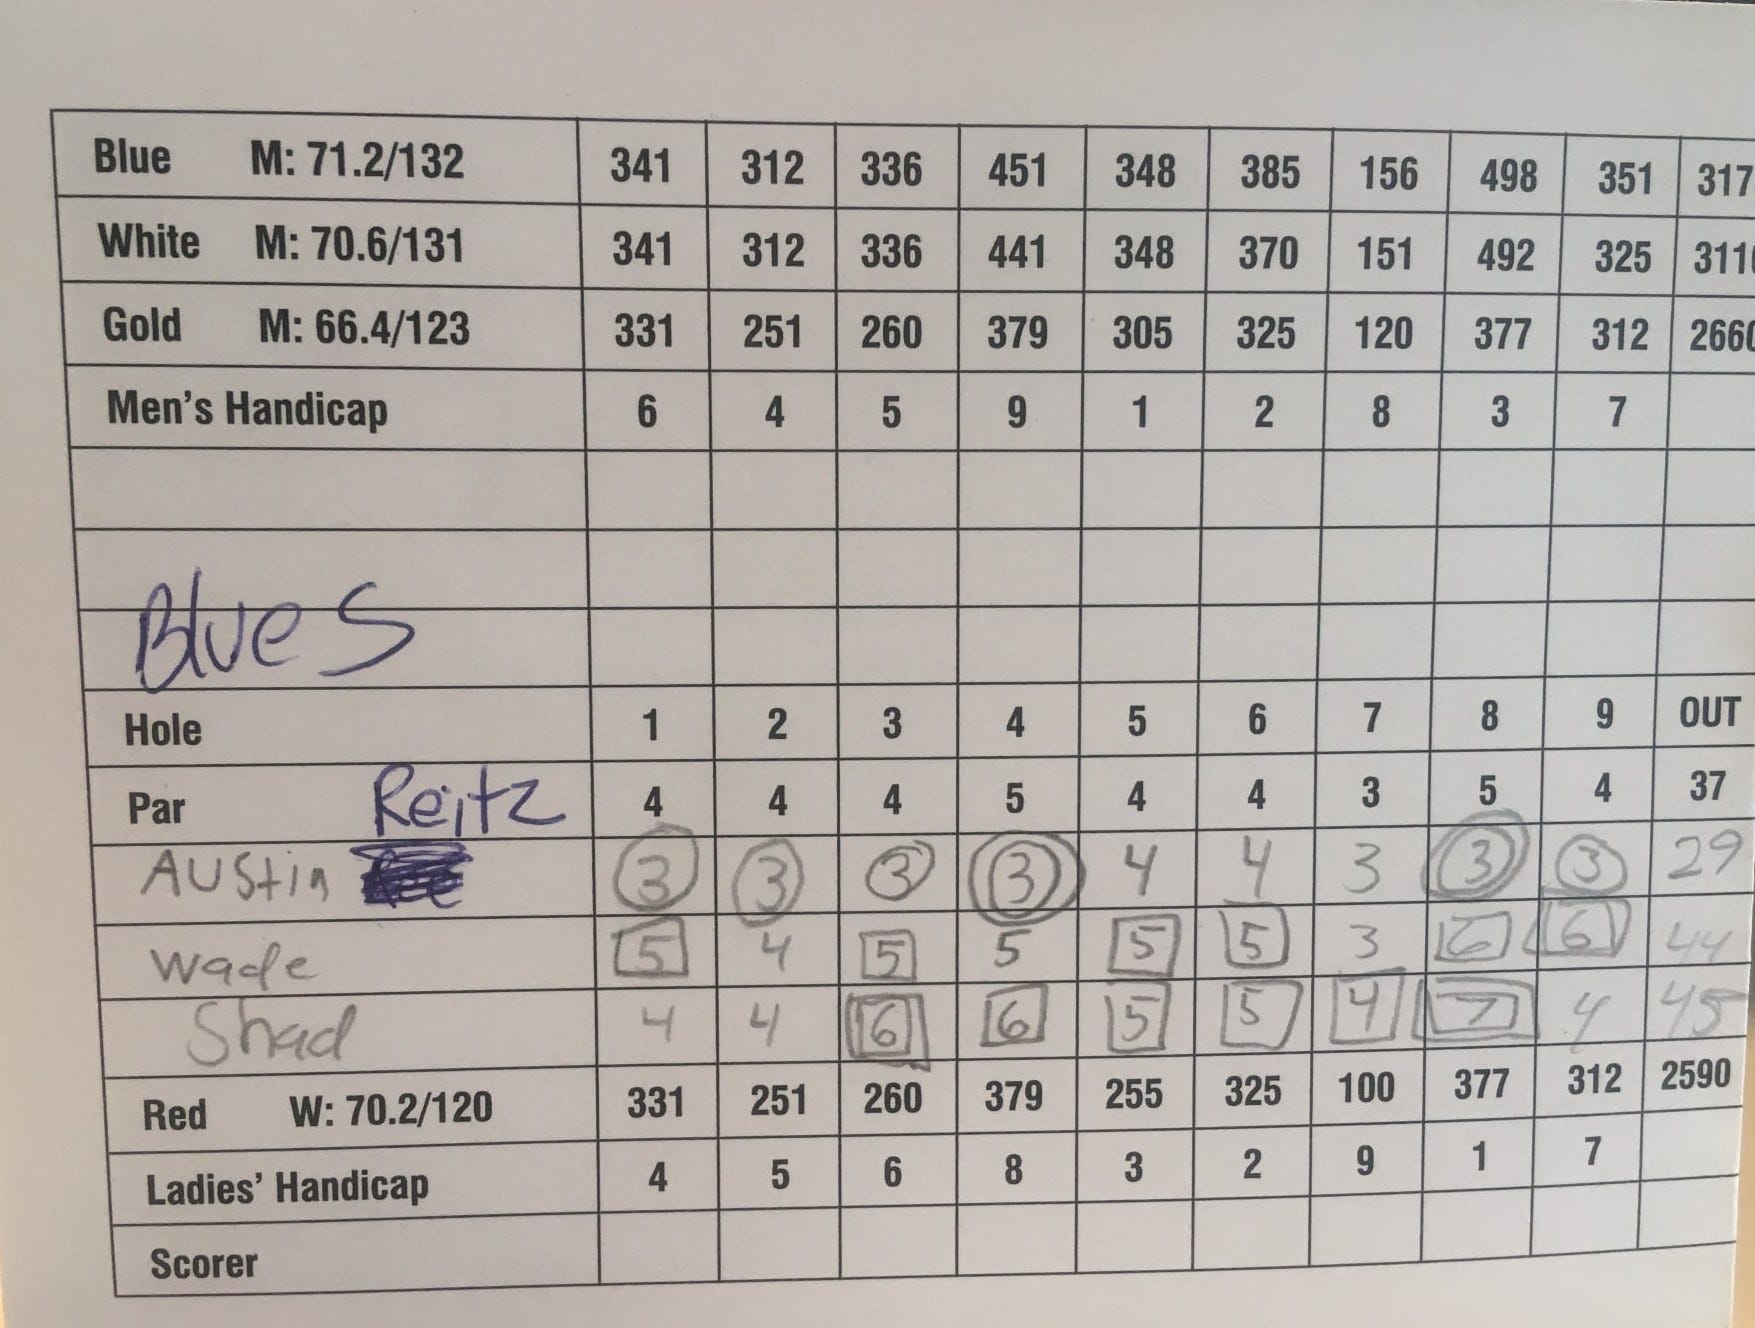 Blue M: 71.2/132 341 312 336 451 348 385 156 498 351 317
White M: 70.6/131 341 312 336 441 348 370 151 492 325 311
Gold M: 66.4/123 331 251 260 379 305 325 120 377 312 2660
Men's Handicap 6 4 5 9 1 2 8 3 7
Blues
Hole 1 2 3 4 5 6 7 8 9 OUT
Par Reitz 4 4 4 5 4 4 3 5 4 37
Austin 3 3 3 3 4 4 3 3 3 29
Wade 5 4 5 5 5 5 3 6 6 44
Shad 4 4 6 6 5 5 4 7 4 45
Red W: 70.2/120 331 251 260 379 255 325 100 377 312 2590
Ladies' Handicap 4 5 6 8 3 2 9 1 7
Scorer